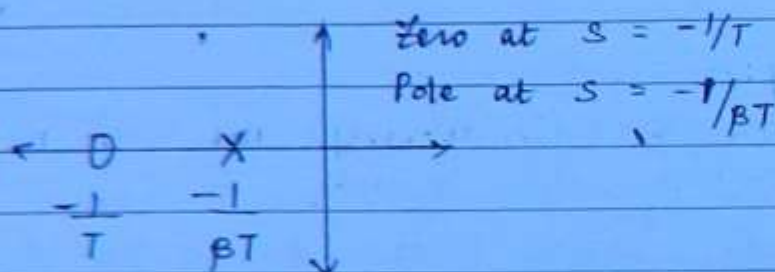 Zero at S = -1/T
Pole at S = -1/βT
O X
-1/T -1/βT